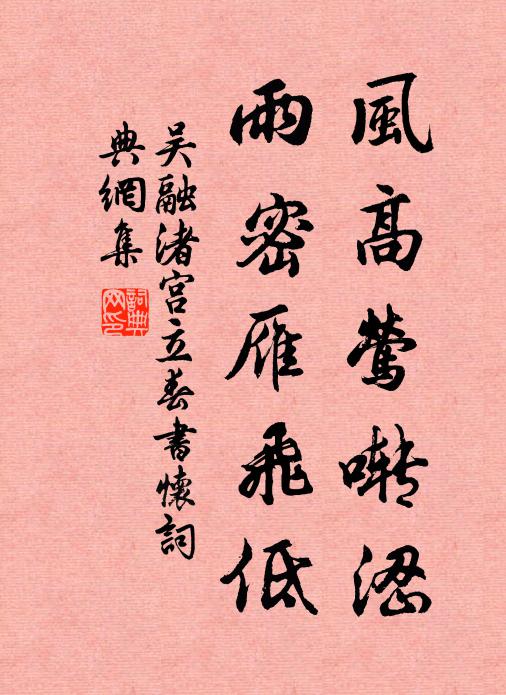 風高鶯囀澀
雨密雁飛低
吴融渚宫立春書懷詞
典網集
詞典网印